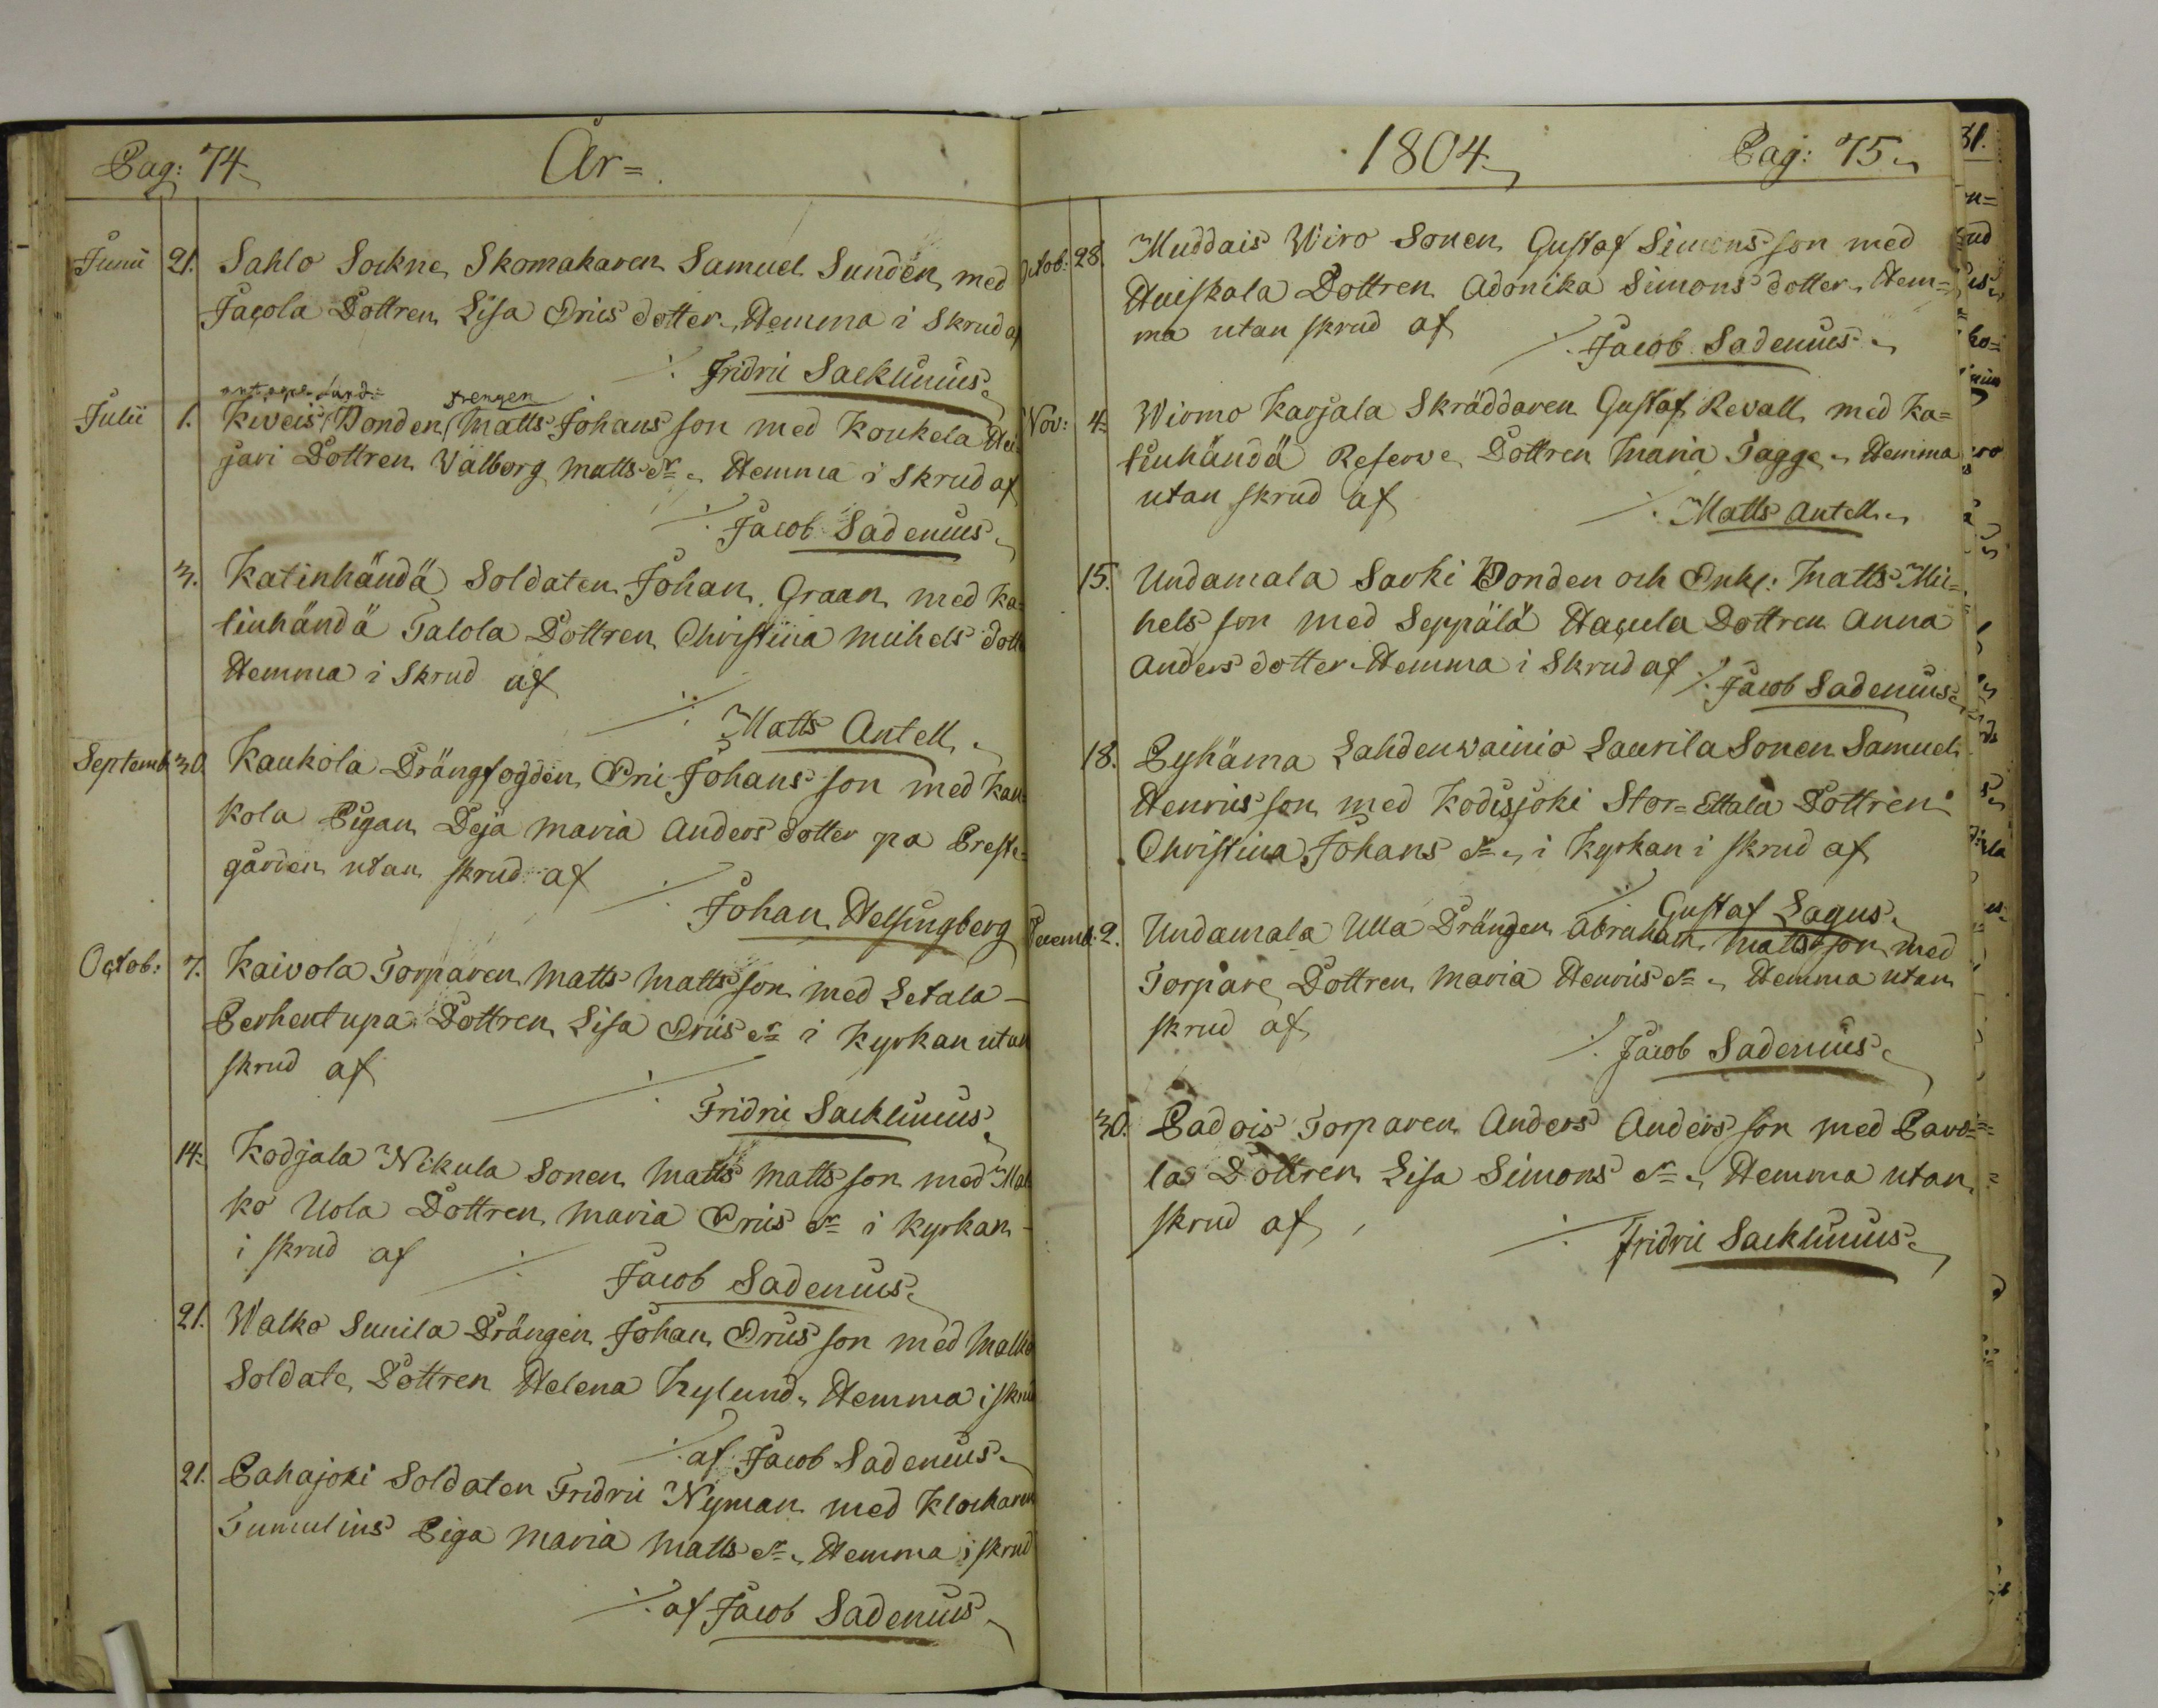 Pag: 74.
År=
Junii 21. Sahlo Sockne Skomakaren Samuel Sundén med
Jacola Dottren Lisa Erics dotter, Hemma i Skrud af
Fridric Sacklinius.
Julii 1. Kiveis Bonden Matts Johans son med Koukela Hei-
jari Dottren Walborg Matts dr. Hemma i Skrud af
Jacob Sadenius.
3. Katinhändä Soldaten Johan Graan med Ka=
tinhändä Talola Dottren Christina Michels dott
Hemma i Skrud af
Matts Antell.
Septemb. 30. Kaukola Drängfogden Eric Johans son med Kau=
kola Pigan Deja Maria Anders dotter pa Preste=
gården utan skrud af
Johan Helsingberg
Octob: 7. Kaivola Torparen Matts Matts son med Setala-
Perhentupa Dottren Lisa Erics dr i Kyrkan utan
skrud af
Fridric Sacklinius
14. Kodjala Nikula Sonen Matts Matts son med Mal
ko Uola Dottren Maria Erics dr i Kyrkan-
i skrud af
Jacob Sadenius.
21. Walko Sunila Drängen Johan Erics son med Malko
Soldate Dottren Helena Hylund, Hemma i skrud
af Jacob Sadenius.
21. Pahajoki Soldaten Fridric Nyman med Klockaren
Tumulins Piga Maria Matts dr. Hemma i skrud
af Jacob Sadenius
1804.
Pag: 75.
Octob: 28. Muddais Wiro Sonen Gustaf Simons son med
Huiskala Dottren Adonika Simons dotter, Hem=
ma utan skrud af
Jacob Sadenius.
Nov: 4. Wirmo Karjala Skräddaren Gustaf Revall med Ka=
tinhändä Reserve Dottren Maria Tagge, Hemma
utan skrud af
Matts Antell.
15. Undamala Sarki Bonden och Enkl: Matts Mic=
hels son med Seppälä Hacula Dottren Anna
Anders dotter. Hemma i Skrud af
Jacob Sadenius.
18. Pyhäma Lahdenwainio Laurila Sonen Samuel
Henrics son med Kodisjoki Stor=Ettala Dottren
Christina Johans dr. i Kyrkan i skrud af
Gustaf Lagus.
Decemb. 2. Undamala Ulla Drängen Abraham Matts son med
Torpare Dottren Maria Henrics dr. Hemma utan
skrud af
Jacob Sadenius.
30. Padois Torparen Anders Anders son med Paro=
las Dottren Lisa Simons dr. Hemma utan
skrud af
Fridric Sacklinius.